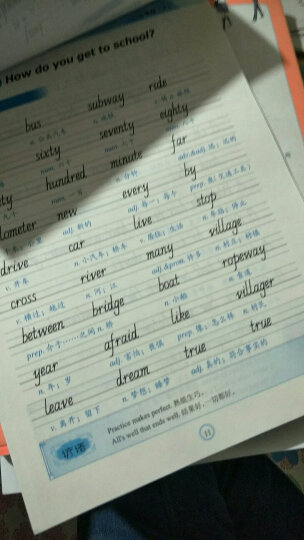 How do you get to school?
bus subway ride
n. 公共汽车 n. 地铁
sixty seventy eighty
num. 六十 num. 七十
hundred minute far
num. 一百 n. 分钟 adv.&adj. 远；远的
new every by
adj. 新的 adj. 每一；每个
drive car live stop
v. 开车 n. 小汽车；轿车 v. 居住；生活 n. 车站；停止
cross river many village
v. 横过；越过 n. 河；江 adj.&pron. 许多 n. 村庄；村镇
between bridge boat ropeway
prep. 介于……之间 n. 桥 n. 小船 n. 索道
year afraid like villager
n. 年；岁 adj. 害怕；畏惧 prep. 像；怎么样 n. 村民
leave dream true true
v. 离开；留下 n. 梦想；睡梦 adj. 真的；符合事实的
谚语
Practice makes perfect. 熟能生巧。
All's well that ends well. 结果好，一切都好。
11